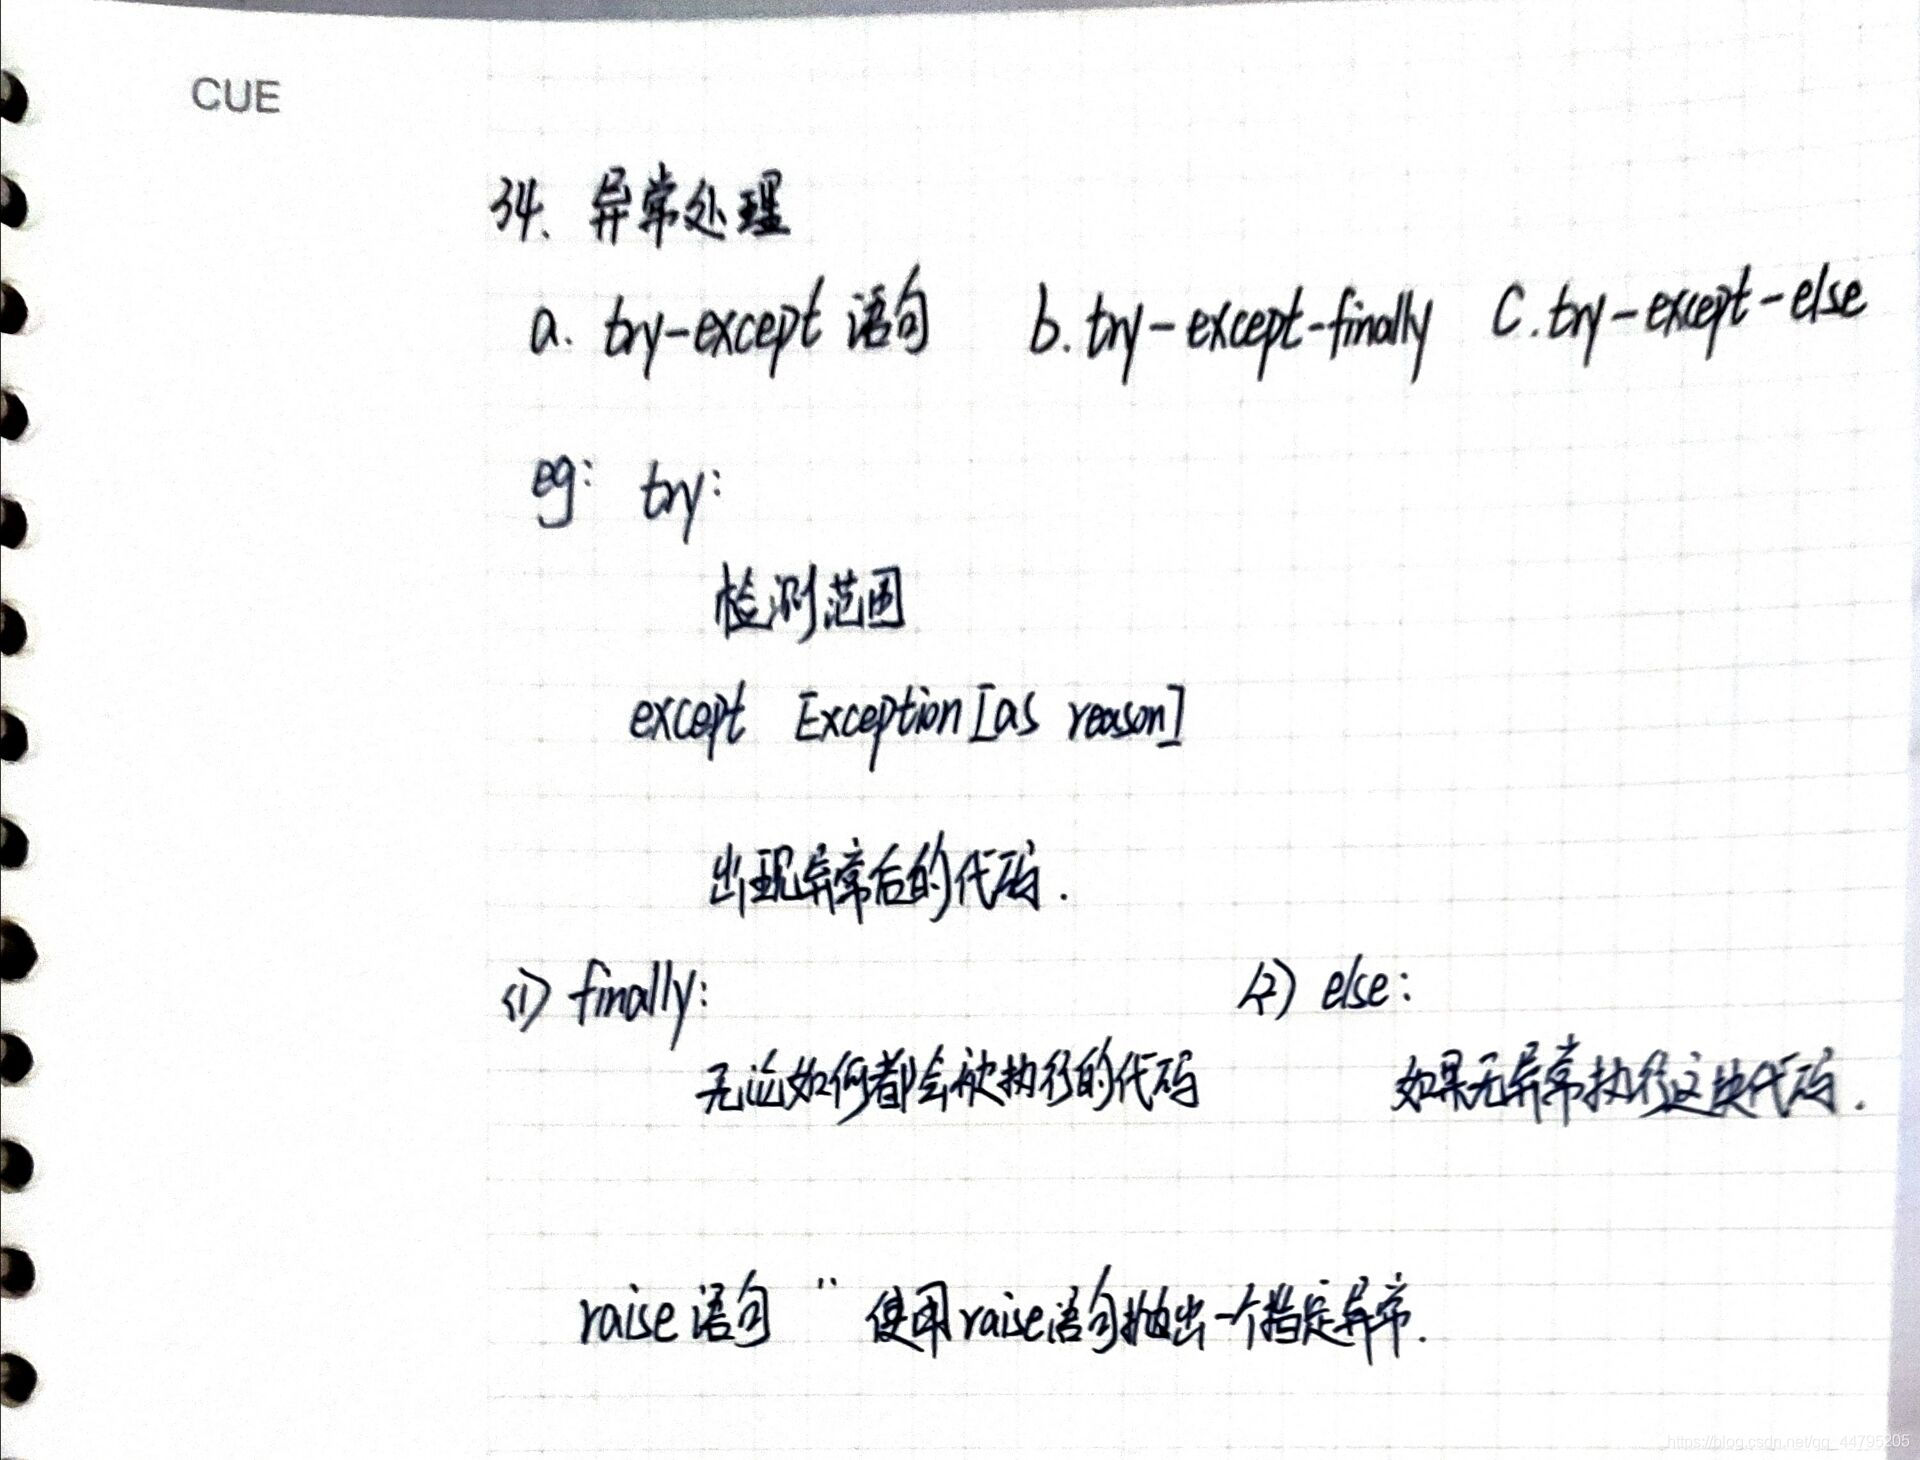 CUE
34、异常处理
a. try-except 语句 b. try-except-finally C. try-except-else
eg: try:
检测范围
except Exception[as reason]
出现异常后的代码.
(1) finally: (2) else:
无论如何都会被执行的代码 如果无异常执行这块代码.
raise 语句 " 使用raise语句抽出一个指定异常.
https://blog.csdn.net/qq_44795205